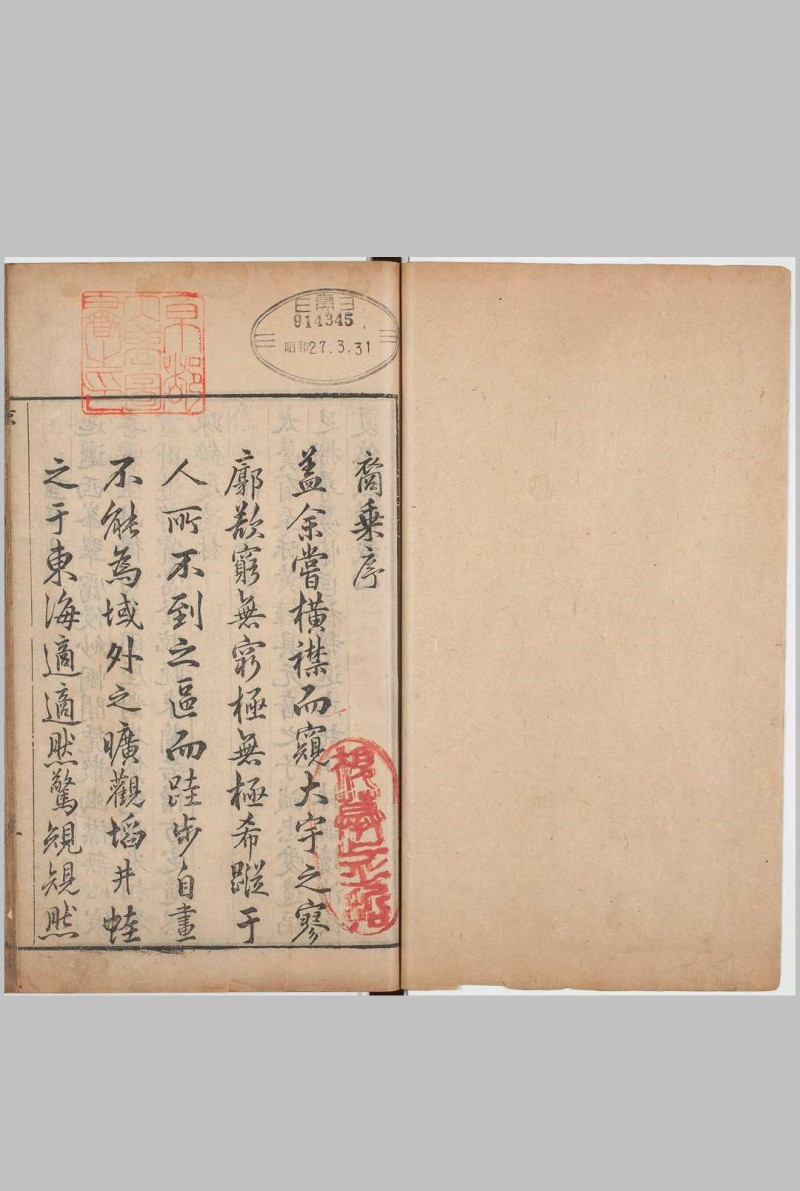 裔乘序
蓋余嘗橫襟而窺大宇之寥
廓欲窮無窮極無極希蹤于
人所不到之區而跬步自畫
不能為域外之曠觀埳井蛙
之于東海適適然驚規規然
914345
昭和27.3.31
京都
大學圖
書之印